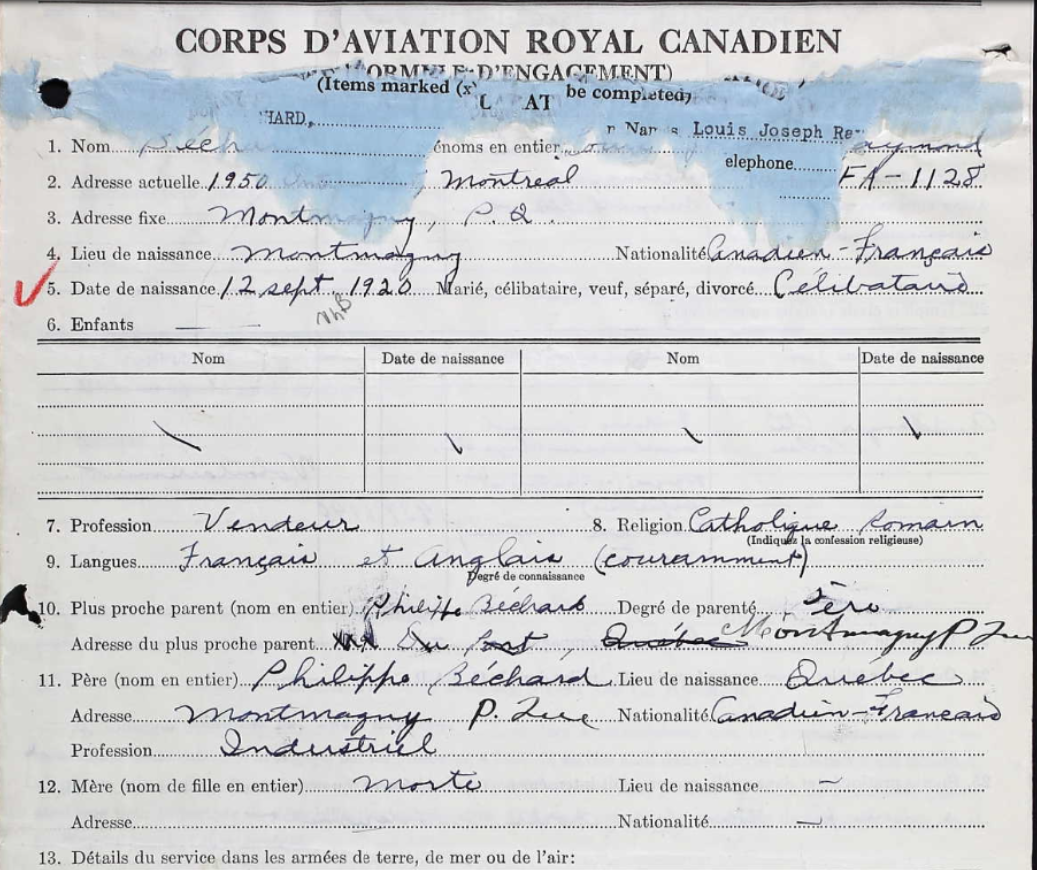 CORPS D'AVIATION ROYAL CANADIEN
D'ENGAGEMENT)
(Items marked (x) be completed)
HARD,
Louis Joseph Ra
1. Nom énoms en entier aymond
elephone
2. Adresse actuelle 1950 Montreal FA-1128
3. Adresse fixe Montmagny, P. Q.
4. Lieu de naissance Montmagny Nationalité Canadien-Français
5. Date de naissance 12 sept. 1920 Marié, célibataire, veuf, séparé, divorcé Célibataire
6. Enfants
Nom Date de naissance Nom Date de naissance
7. Profession Vendeur 8. Religion Catholique Romain
(Indiquez la confession religieuse)
9. Langues Français et Anglais (couramment)
Degré de connaissance
10. Plus proche parent (nom en entier) Philippe Béchard Degré de parenté Père
Adresse du plus proche parent Du Port, Québec Montmagny P. Que
11. Père (nom en entier) Philippe Béchard Lieu de naissance Québec
Adresse Montmagny P. Que Nationalité Canadien-Français
Profession Industriel
12. Mère (nom de fille en entier) Morte Lieu de naissance –
Adresse Nationalité –
13. Détails du service dans les armées de terre, de mer ou de l'air: